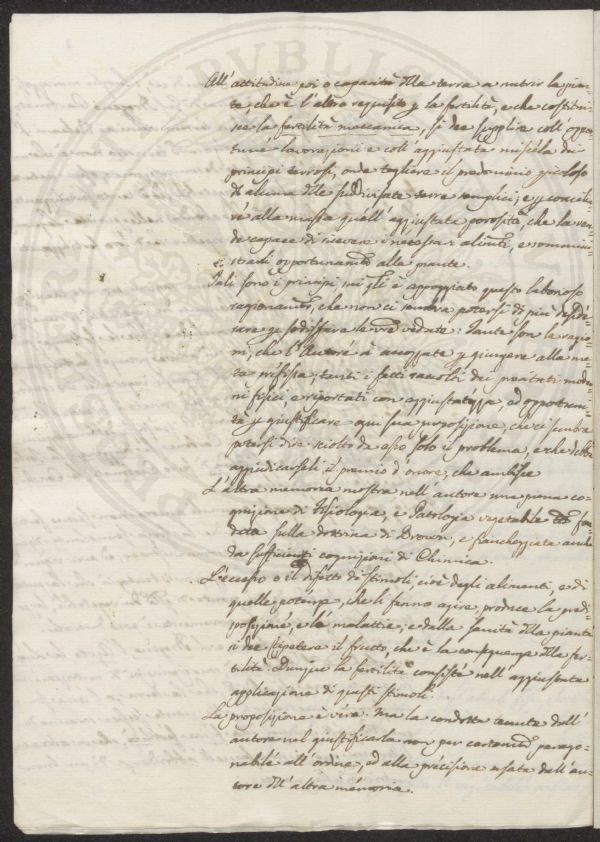 All'attitudine poi o capacità dlla terra a nutrir la pian=
te, che è l'altro requisito p la fertilità, e che costitui=
sce la fertilità meccanica, si dee supplire coll'oppor=
tune lavorazioni e coll'aggiustata miscéla dei
principj terrosi, onde togliere il predominio
di alcuna dlle suddivisate terre semplici; e concili=
rà alla massa quell'aggiustata porosità, che la ren=
de capace di ricevere i necessarj alimti, e sommini=
strarli opportunamte alla piante.
Tali sono i principj, sui qli è appoggiato questo laborioso
ragionamto, che non ci sembra potersi di più deside=
rare p sodisfare le vre vedute: Tante son le ragio=
ni, che l'Autore à accoppiate p giungere alla me=
ta prefissa, tanti i fatti raccolti dei precitati moder=
ni fisici, e riportati con aggiustatezza, ed opportuni=
tà p giustificare ogni sua proposizione, che ci sembra
potersi dire sciolto da esso solo il problema, e che debba
aggiudicarseli il premio d'onore, che ambisce
L'altra memoria mostra nell'autore una piena co=
gnizione di Fisiologia, e Patologia vegetabile fon
data sulla dottrina di Brown, e fiancheggiata anche
da sufficienti cognizioni di Chimica.
L'eccesso o il difetto di stimoli cioè degli alimenti, e di
quelle potenze, che li fanno agire, produce la predi=
sposizione, e le malattie; e dalla sanità dlla pianta
si dee ripetere il frutto, che è la conseguenza dlla fer=
tilità. Dunque la fertilità consiste nell'aggiustata
applicazione di questi stimoli.
La proposizione è vera. Ma la condotta tenuta dall'
autore nel giustificarla non par certamte parago=
nabile all'ordine, ed alla précisione usata dall'au=
tore dll'altra mémoria.
PVBLIC